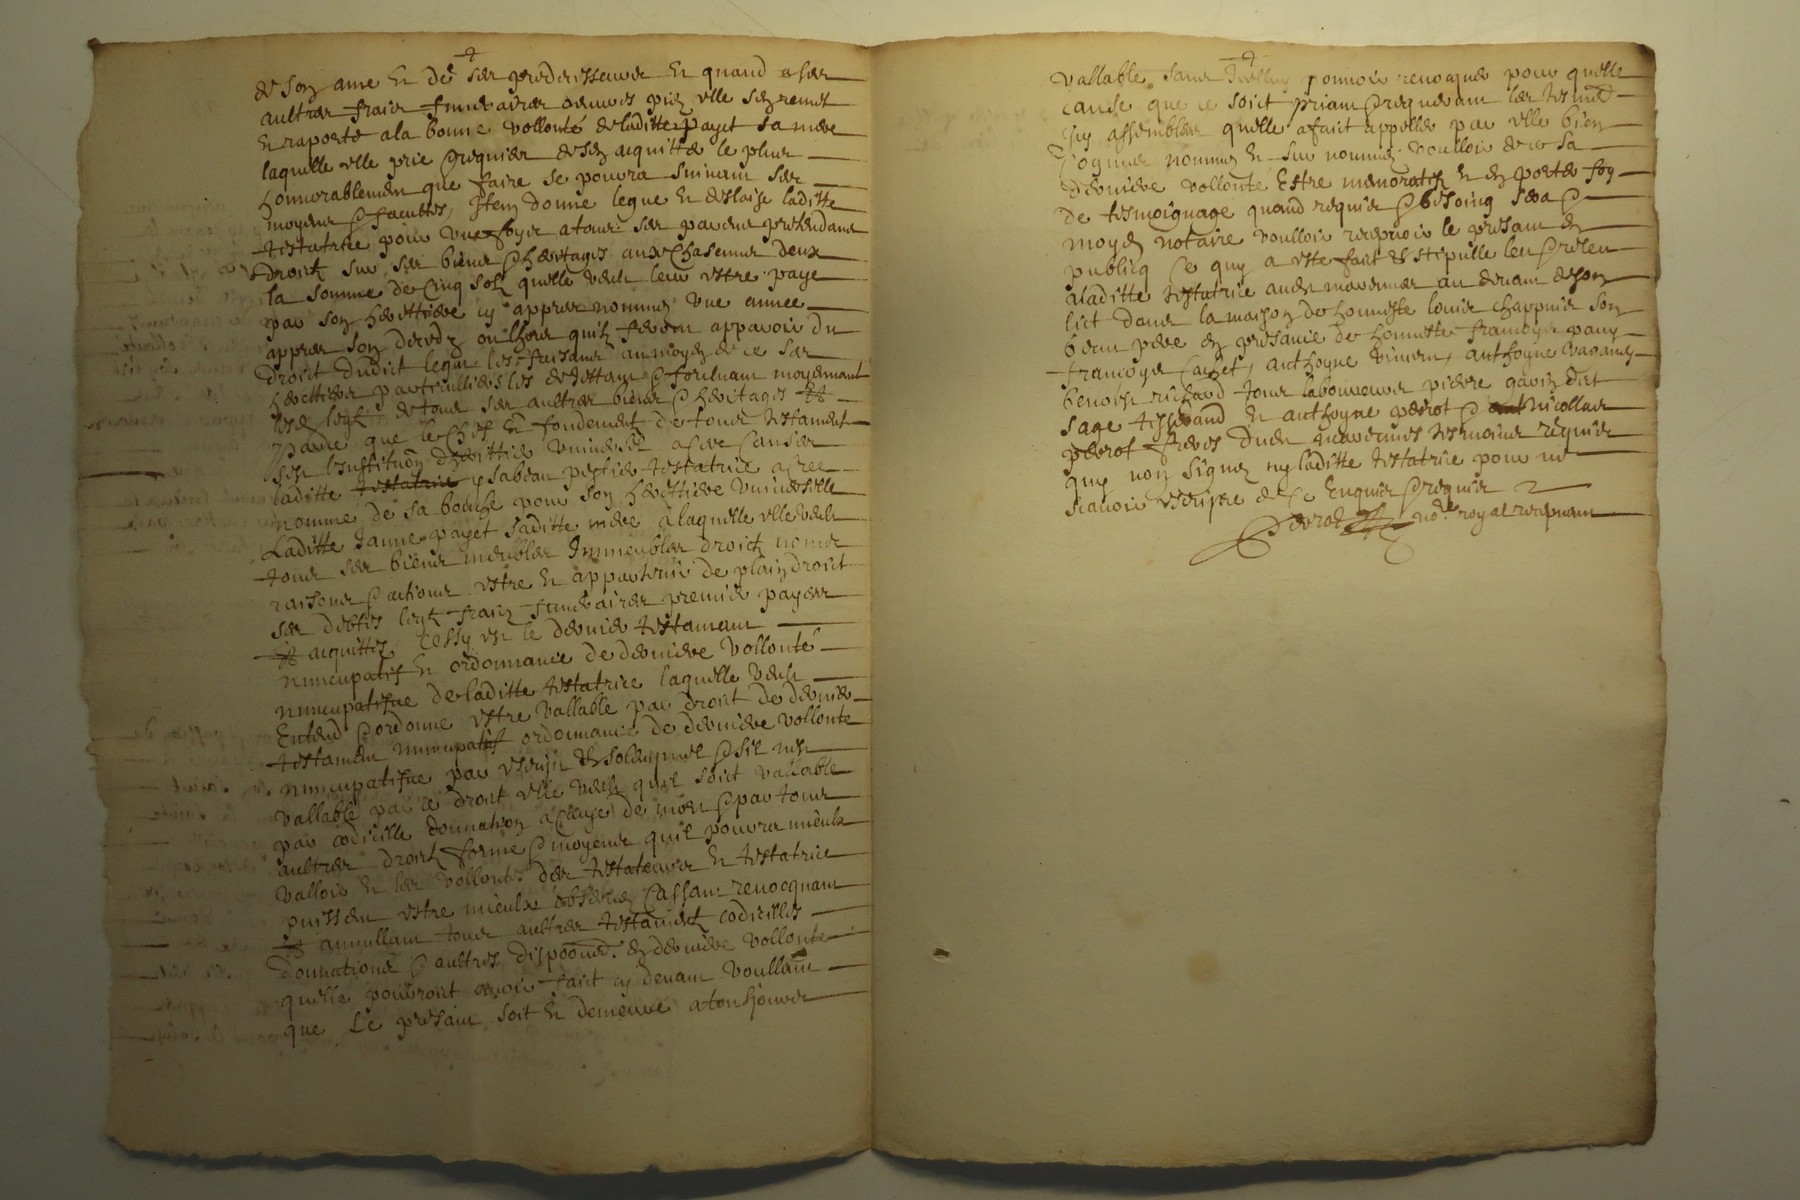 de son ame et de ses predecesseurs et quand a ses
aultres frais funeraires œuvres pies elle sen remet
et raporte a la bonne vollonté de laditte payet sa mere
laquelle elle prie & requier de sen acquitter le plus
honnorablement que faire se pourra suivant ses
moyens & facultes, Item donne legue et deslaise laditte
testatrice pour une foys a tous ses parens pretendans
droict sur ses biens & heritages aux chascuns deux
la somme de cinq solz quelle veult leur estre paye
par son herettiere cy appres nommée une annee
appres son deceds ou lhors quilz feront apparoir du
droict dudict legat les faisans au moyen de ce ses
herettiers particulliers les dejettant & forcluant moyennant
lesd legtz de tous ses aultres biens & heritages Et
parce que le chef et fondement de tous testament
est linstitution dherittier universel a ceste cause
laditte ysabeau testatrice a cree
nommé de sa bouche pour son herettiere universelle
laditte Janne payet saditte mere a laquelle elle veult
tous ses biens meubles Immeubles droictz noms
raisons & actions estre et appartenir de plain droict
ses debtes legtz fraiz funeraires premier payes
& acquittes Cessy est le dernier testamant
nuncupatif et ordonnance de derniere vollonté
nuncupatifve de laditte testatrice laquelle veult
Entend & ordonne estre vallable par droict de dernier
testament nuncupatif ordonnance de derniere vollonte
nuncupatifve par escript & solempnel & sil nest
vallable par ce droict elle veult quil soict vallable
par codicille donnation a cause de mort & par tous
aultres droictz forme & moyens quil pourra mieulx
valloir et les vollontes des testateurs et testatrice
puissent estre mieulx observes Cassant revocquant
& annullant tous aultres testament codicilles
donnations & aultres disposions. et derniere vollonte
quelle pourroit avoir faict cy devant voullant
que Le presant soit et demeure a tousjours
vallable sans Icelluy pouvoir revoquer pour quelle
cause que ce soict priant & requerant les tesmoins
icy assembles quelle a faict appeller par elle bien
cogneus nommes et sur nommes voulloir de ce sa
derniere vollonte Estre memoratifz et en porter foy
de tesmoignage quand requier & besoing sera &
moy notaire voulloir recepvoir le presant en
publicq Ce quy a este faict & stipulle leu & releu
a laditte testatrice audit au devant de son
lict dans la maison de honneste louis chappuis son
beau pere en presance de honneste françoys pauy
françoys cachet, anthoyne vincent, anthoyne
benoist richard tous laboureurs pierre gavin dict
sage tisserand et anthoyne perrot & nicollas
perrot freres dudit tesmoins requier
quy non signe ny laditte testatrice pour ne
scavoir escripre de ce Enquier & requier
Perrot no.re royal recepvant